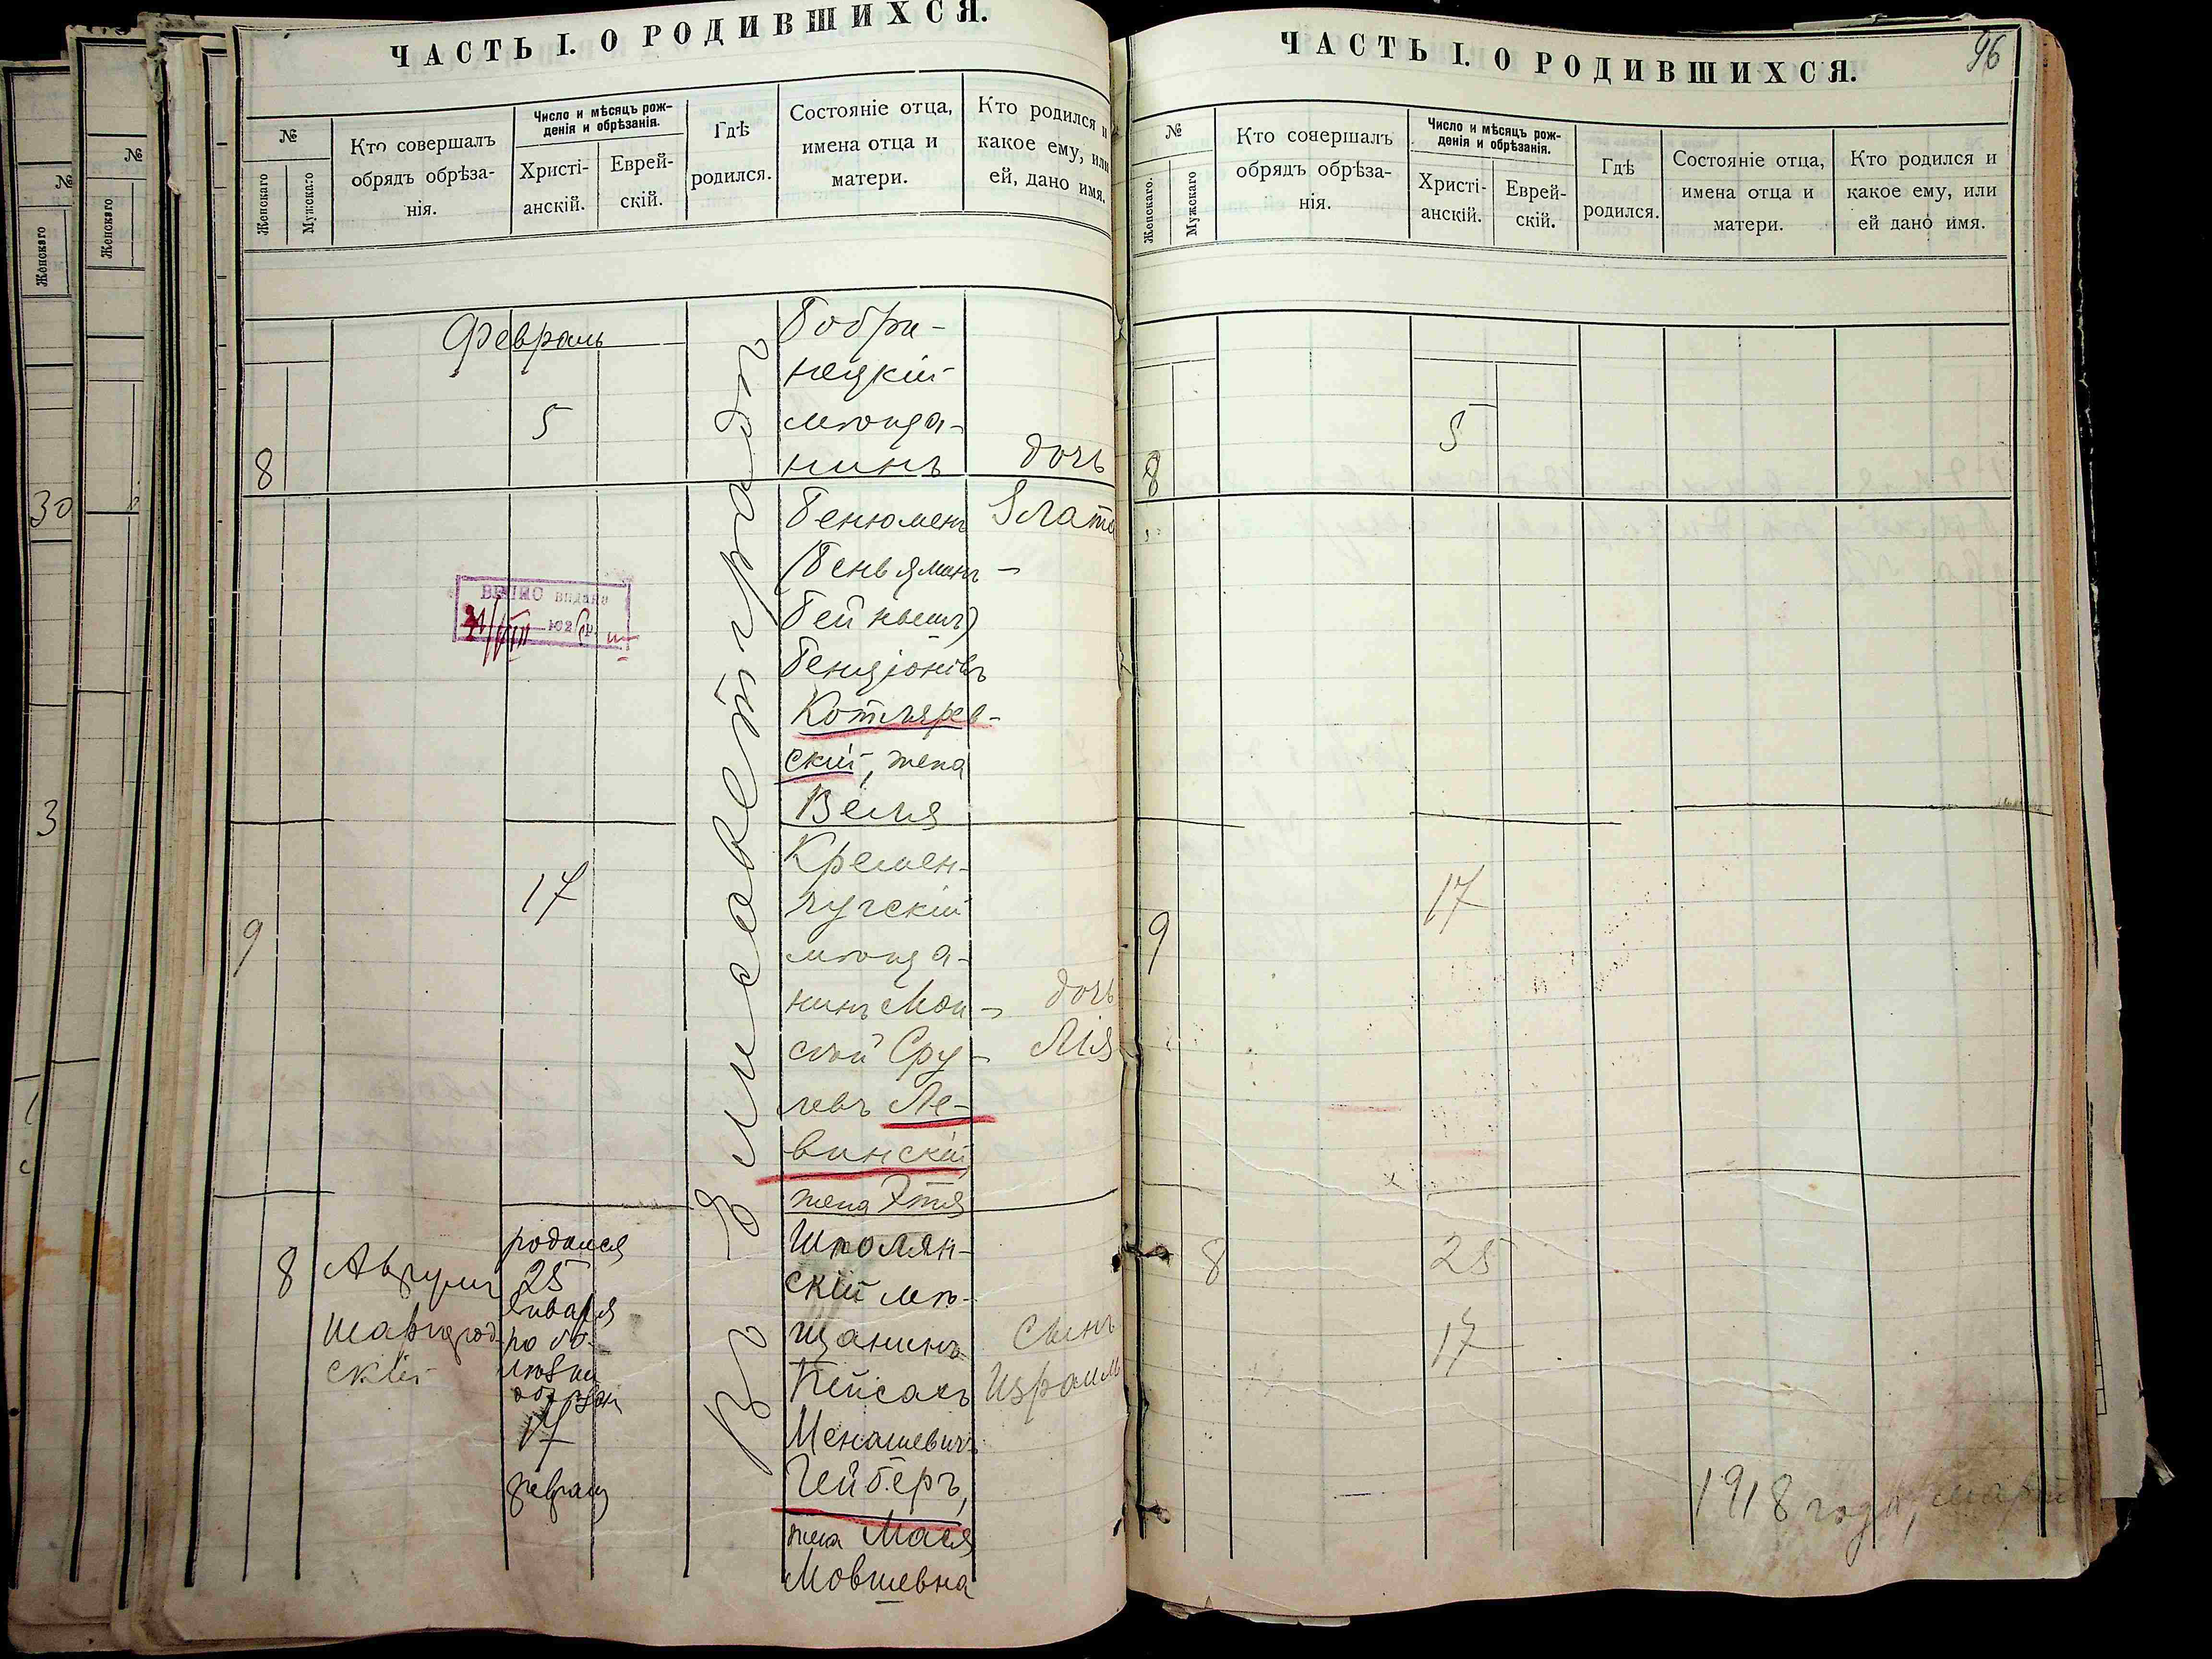 ЧАСТЬ I. О РОДИВШИХСЯ.
№
Женскаго
Мужскаго
Кто совершалъ
обрядъ обрѣза-
нія.
Число и мѣсяцъ рож-
денія и обрѣзанія.
Христі-
анскій.
Еврей-
скій.
Гдѣ
родился.
Состояніе отца,
имена отца и
матери.
Кто родился и
какое ему, или
ей, дано имя.
Февраль
8
5
Бобри-
нецкій
мѣща-
нинъ
Бенюменъ
(Беньяминъ-
Бейнышъ)
Бенціоновъ
Котляров-
скій, жена
Бейля
дочь
Злата
ВЕРНО видана
9
17
Кремен-
чугскій
мѣща-
нинъ Мои-
сей Сру-
левъ Ле-
винскій
жена Этя
дочь
Лія
8
Аврумъ
Шаргород-
скій
родился
25
января
по бо-
лѣзни
обрѣзан
17
февраля
Въ Елисаветградѣ
Шполян-
скій мѣ-
щанинъ
Пейсахъ
Менашевичъ
Гейберъ,
жена Мася
Мовшевна
Сынъ
Израиль
30
3
№
Женскаго
№
Женскаго
ЧАСТЬ I. О РОДИВШИХСЯ.
96
№
Женскаго.
Мужскаго
Кто совершалъ
обрядъ обрѣза-
нія.
Число и мѣсяцъ рож-
денія и обрѣзанія.
Христі-
анскій.
Еврей-
скій.
Гдѣ
родился.
Состояніе отца,
имена отца и
матери.
Кто родился и
какое ему, или
ей дано имя.
8
5
9
17
8
25
17
1918 года, март